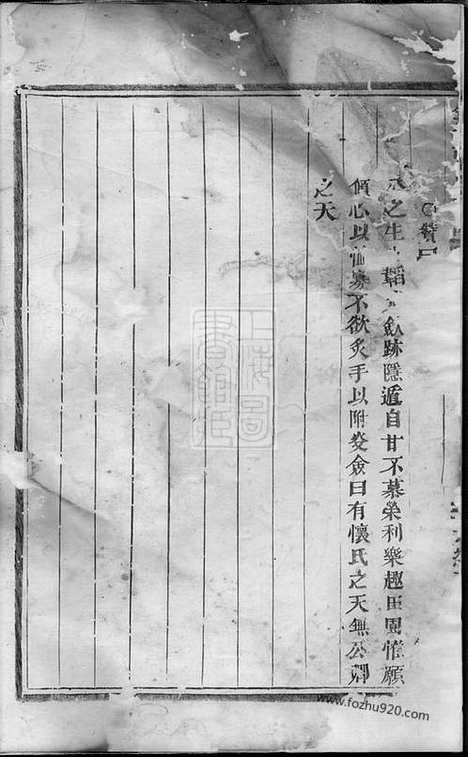 贊曰
之生 韜 斂跡隱遁自甘不慕榮利樂趣田園惟願
傾心以恤寡不欲炙手以附炎僉曰有懷氏之天無公卿
之天
上海圖書館藏
www.fozhu920.com